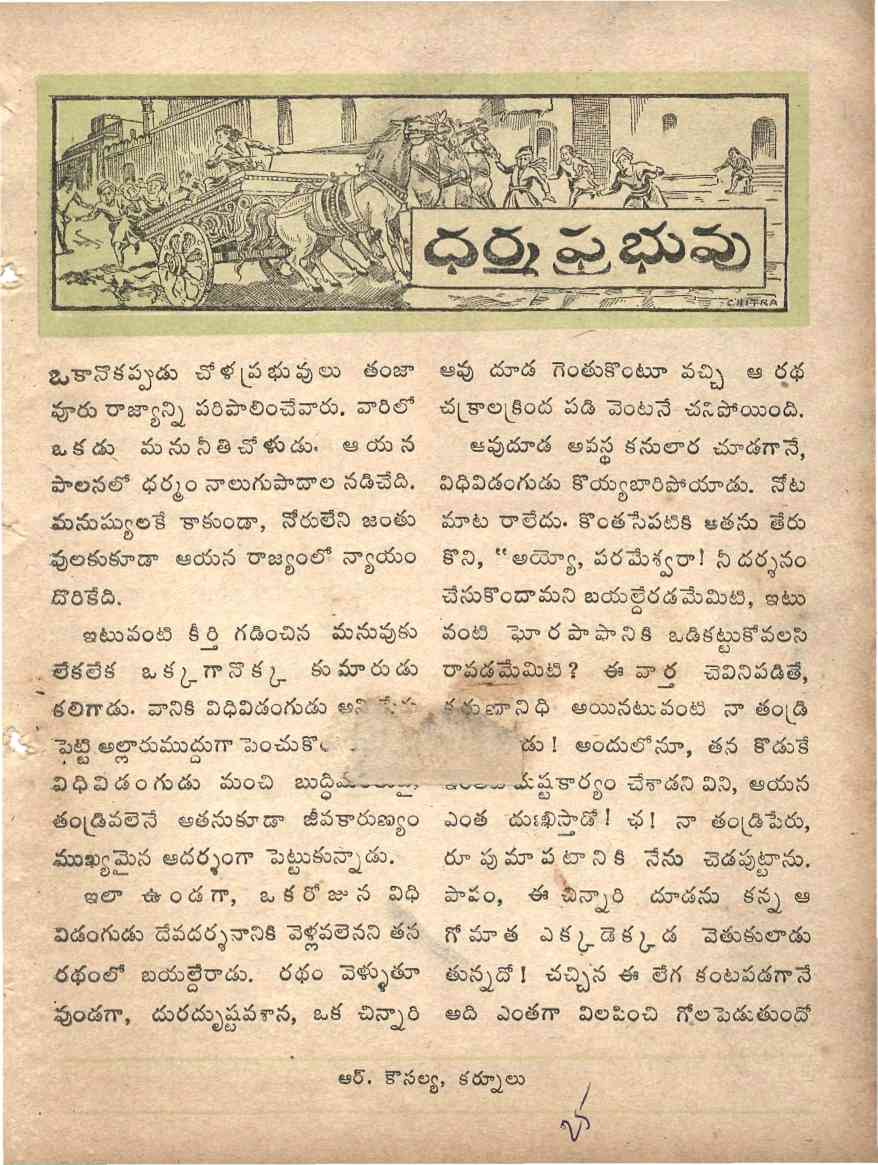 ధర్మప్రభువు
CHITRA
ఒకానొకప్పుడు చోళప్రభువులు తంజా
వూరు రాజ్యాన్ని పరిపాలించేవారు. వారిలో
ఒకడు మనునీతిచోళుడు. ఆయన
పాలనలో ధర్మం నాలుగుపాదాల నడిచేది.
మనుష్యులకే కాకుండా, నోరులేని జంతు
వులకుకూడా ఆయన రాజ్యంలో న్యాయం
దొరికేది.
ఇటువంటి కీర్తి గడించిన మనువుకు
లేకలేక ఒక్కగానొక్క కుమారుడు
కలిగాడు. వానికి విధివిడంగుడు అని
పెట్టి అల్లారుముద్దుగా
విధివిడంగుడు మంచి
తండ్రివలెనే అతనుకూడా జీవకారుణ్యం
ముఖ్యమైన ఆదర్శంగా పెట్టుకున్నాడు.
ఇలా ఉండగా, ఒకరోజున విధి
విడంగుడు దేవదర్శనానికి వెళ్లవలెనని తన
రథంలో బయల్దేరాడు. రథం వెళ్ళుతూ
వుండగా, దురదృష్టవశాన, ఒక చిన్నారి
ఆవు దూడ గెంతుకొంటూ వచ్చి ఆ రథ
చక్రాలక్రింద పడి వెంటనే చనిపోయింది.
ఆవుదూడ అవస్థ కనులార చూడగానే,
విధివిడంగుడు కొయ్యబారిపోయాడు. నోట
మాట రాలేదు. కొంతసేపటికి అతను తేరు
కొని, "అయ్యో, పరమేశ్వరా! నీ దర్శనం
చేసుకొందామని బయల్దేరడమేమిటి, ఇటు
వంటి ఘోరపాపానికి ఒడికట్టుకోవలసి
రావడమేమిటి? ఈ వార్త చెవినిపడితే,
కరుణానిధి అయినటువంటి నా తండ్రి
డు! అందులోనూ, తన కొడుకే
చేశాడని విని, ఆయన
ఎంత దుఃఖిస్తాడో! ఛ! నా తండ్రిపేరు,
రూపుమాపటానికి నేను చెడపుట్టాను.
పాపం, ఈ చిన్నారి దూడను కన్న ఆ
గోమాత ఎక్కడెక్కడ వెతుకులాడు
తున్నదో! చచ్చిన ఈ లేగ కంటపడగానే
అది ఎంతగా విలపించి గోలపెడుతుందో
ఆర్. కౌసల్య, కర్నూలు